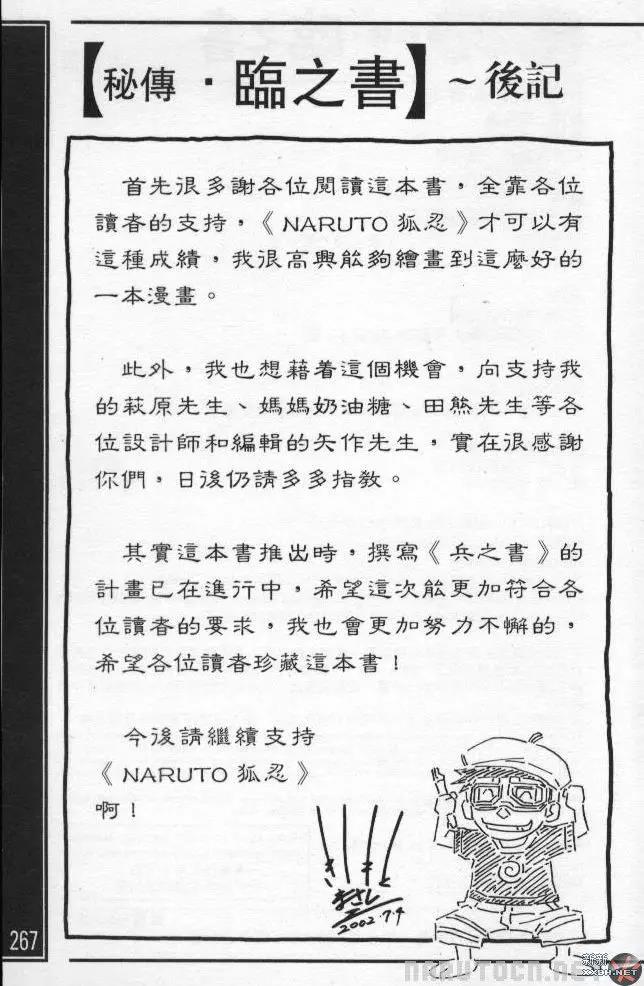 【秘傳・臨之書】~後記
首先很多謝各位閱讀這本書,全靠各位
讀者的支持,《NARUTO 狐忍》才可以有
這種成績,我很高興能夠繪畫到這麼好的
一本漫畫。
此外,我也想藉着這個機會,向支持我
的萩原先生、媽媽奶油糖、田熊先生等各
位設計師和編輯的矢作先生,實在很感謝
你們,日後仍請多多指教。
其實這本書推出時,撰寫《兵之書》的
計畫已在進行中,希望這次能更加符合各
位讀者的要求,我也會更加努力不懈的,
希望各位讀者珍藏這本書!
今後請繼續支持
《NARUTO 狐忍》
啊!
きしもと
まさし
2002.7.4
267
新新
XXBH.NET
NARUTOCN.NET